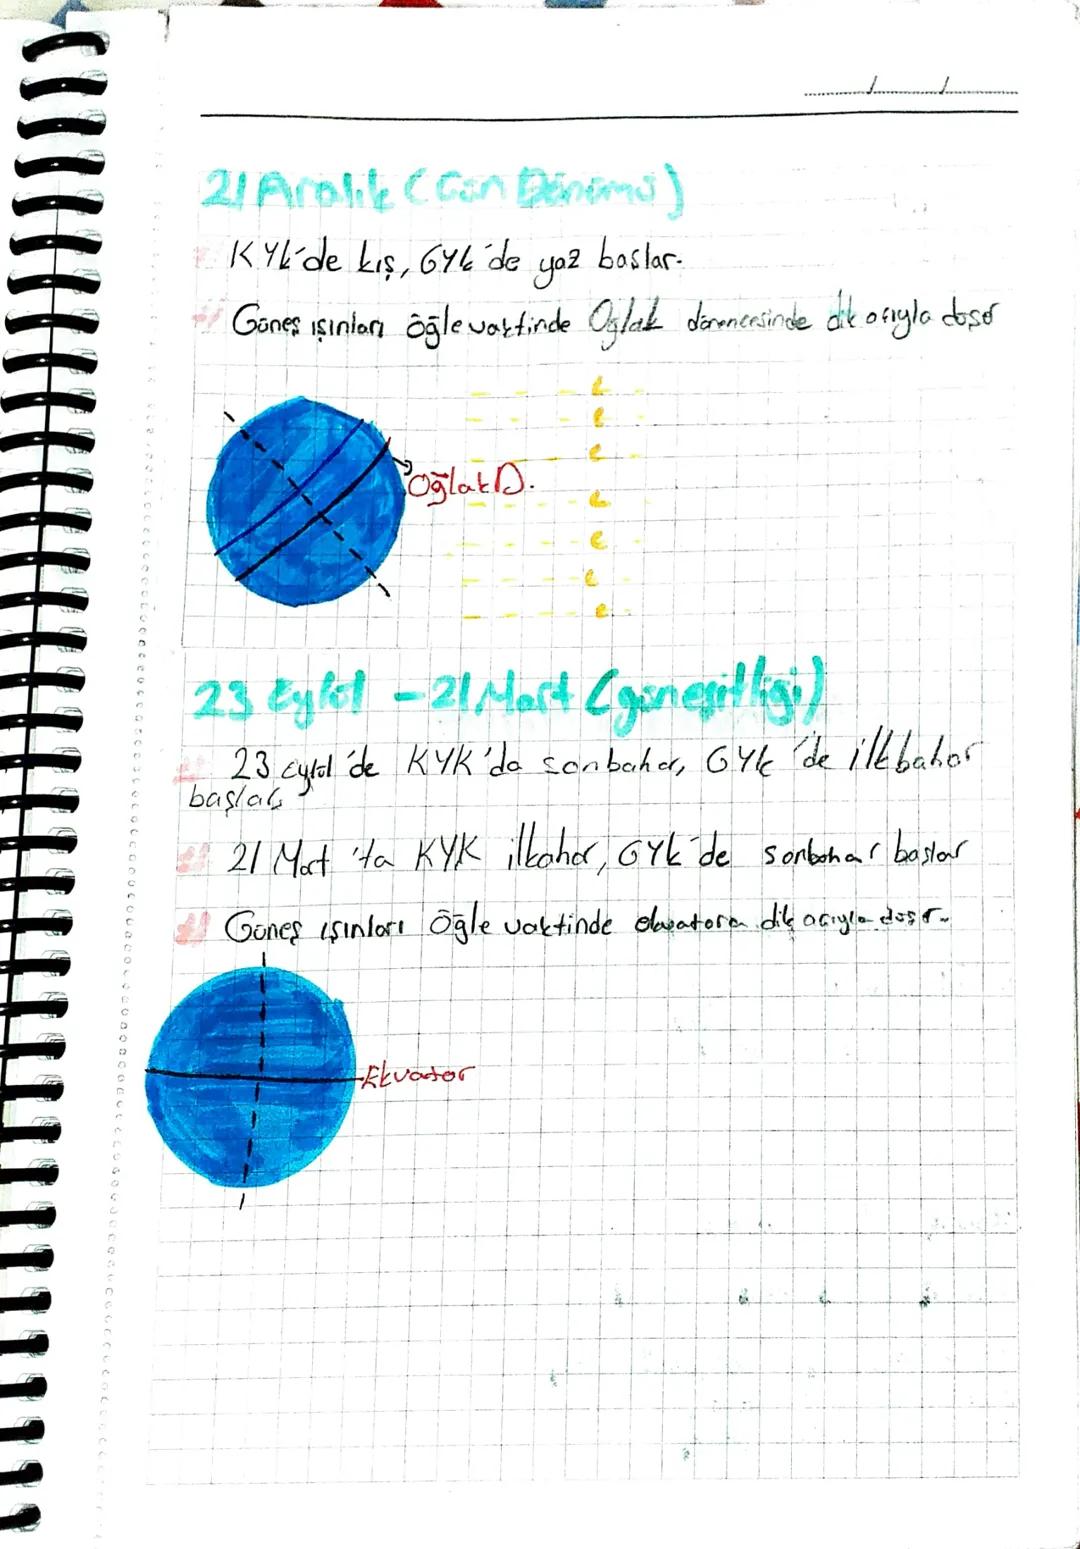 21 Aralık (Gün Dönümü)
KYK'de kış, GYK'de yaz başlar.
Güneş ışınları öğle vaktinde Oğlak dönencesinde dik açıyla düşer
Oğlak D.
23 Eylül - 21 Mart (güneşitliği)
23 eylül'de KYK'da sonbahar, GYK'de ilkbahar
başlar
21 Mart 'ta KYK ilkahar, GYK'de sonbahar başlar
Güneş ışınları Öğle vaktinde ekvatora dik açıyla düşer.
Ekvator